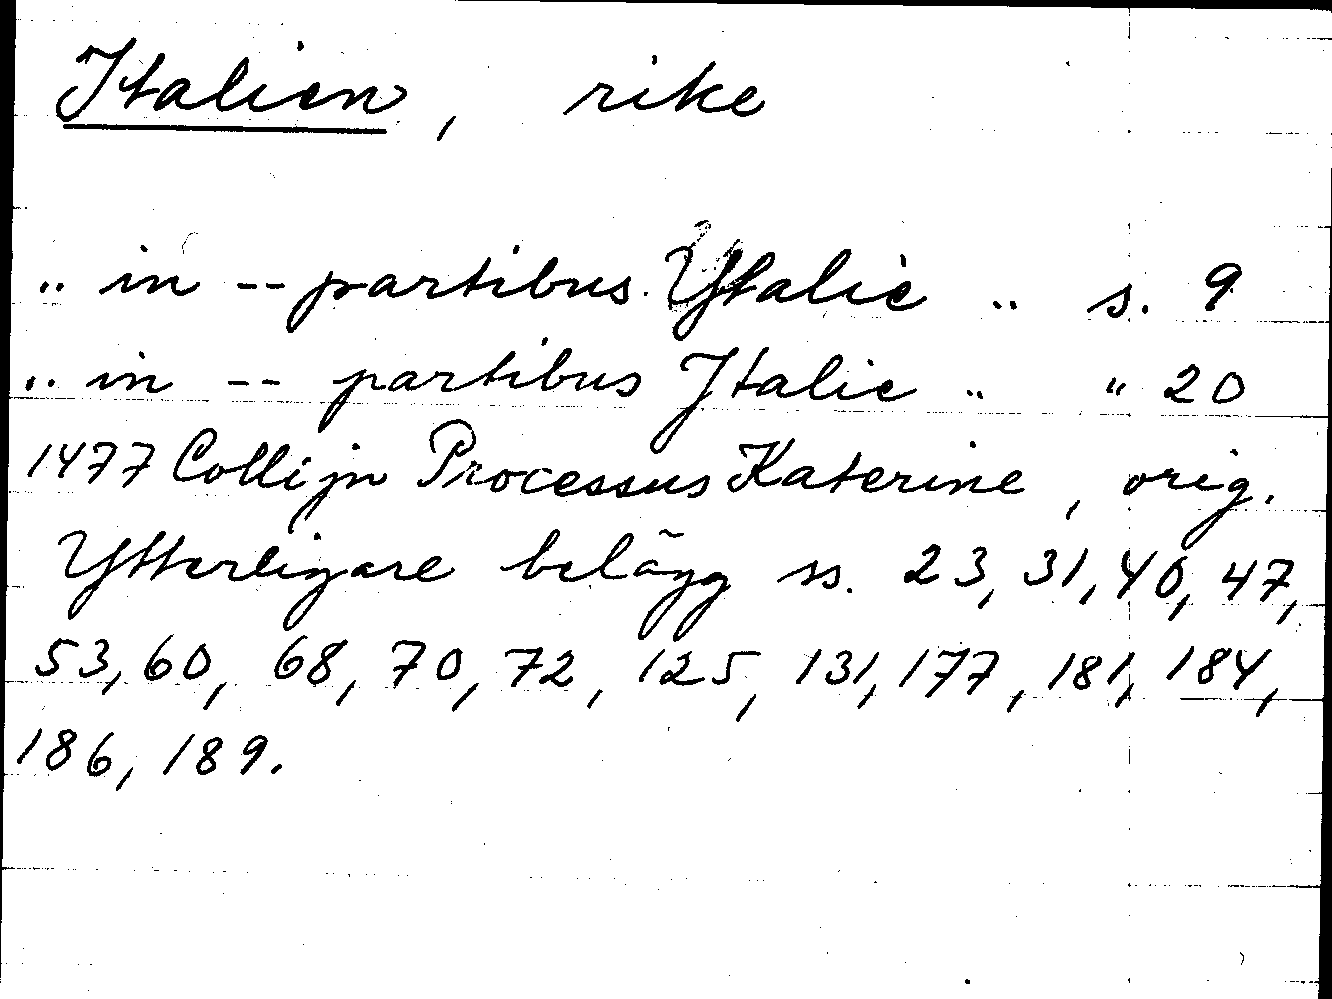 Italien, rike
.. in -- partibus Ytalie .. s. 9
.. in -- partibus Italie .. " 20
1477 Collijn Processus Katerine, orig.
Ytterligare belägg ss. 23, 31, 40, 47,
53, 60, 68, 70, 72, 125, 131, 177, 181, 184,
186, 189.